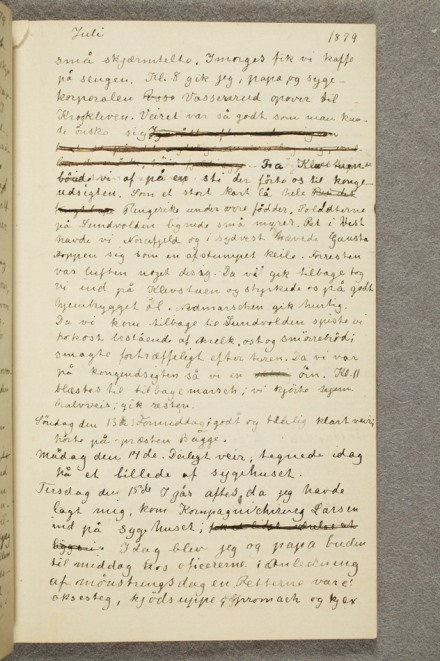 Juli 1879
små skjærmtelte. Imorges fik vi kaffe
på sengen. Kl. 8 gik jeg, papa og syge-
korporalen Vasserud opover til
Krokkleven. Veiret var så godt som man kun-
de önske sig
Fra Klevstuen
böiede vi af på en sti der förte os til konge-
udsigten. Som et stort kart lå hele
Ringerike under vore fødder. Soldaterne
på Sundvolden lignede små myrer. Ret i Vest
havde vi Norefjeld og i sydvest hævede Gausta
toppen sig som en afstumpet keile. Forresten
var luften noget disig. Da vi gik tilbage tog
vi ind på Klevstuen og styrkede os på godt
hjembrygget öl. Nedmarschen gik hurtig.
Da vi kom tilbage til Sundvolden spiste vi
frokost bestående af melk, ost og smörrebröd;
smagte fortræffeligt efter turen. Da vi var
på kongeudsigten så vi en örn. Kl. 11
blæstes til tilbagemarsch; vi kjörte hjem
halvveis, gik resten.
Söndag den 13de. Formiddag; godt og klart veir;
hörte på præsten Bugge.
Måndag den 14de. Deiligt veir; tegnede idag
på et billede af sygehuset.
Tirsdag den 15de. Igår aftes, da jeg havde
lagt mig, kom Kompagniskriver Larsen
ind på sygehuset;
Idag blev jeg og papa buden
til middag hos oficererne i anledning
af mönstringsdagen. Retterne vare:
oksesteg, kjödsuppe, og kjex